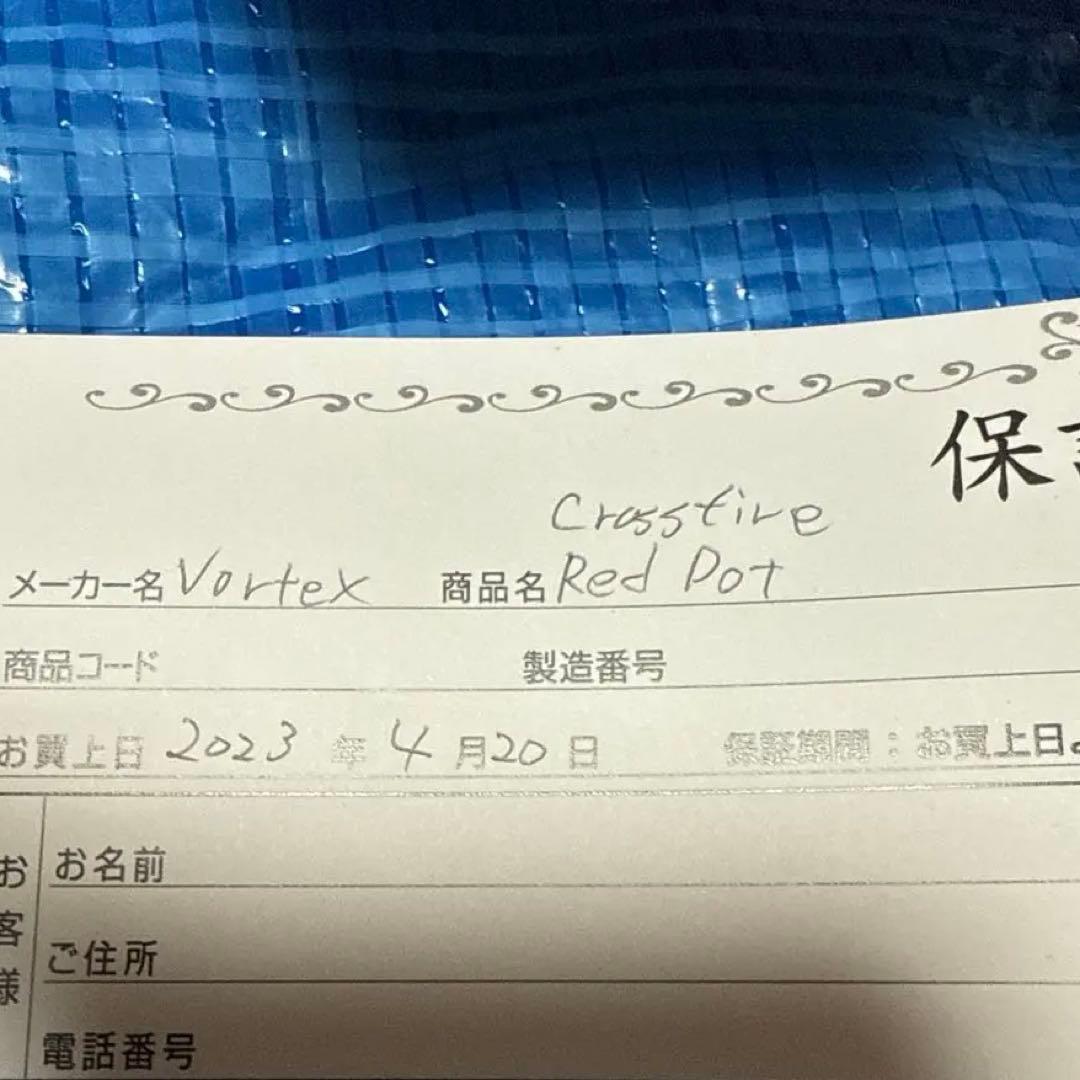 保
Crossfire
メーカー名 Vortex 商品名 Red Dot
商品コード 製造番号
お買上日 2023 年 4 月 20 日 保証期間：お買上日
お客様
お名前
ご住所
電話番号